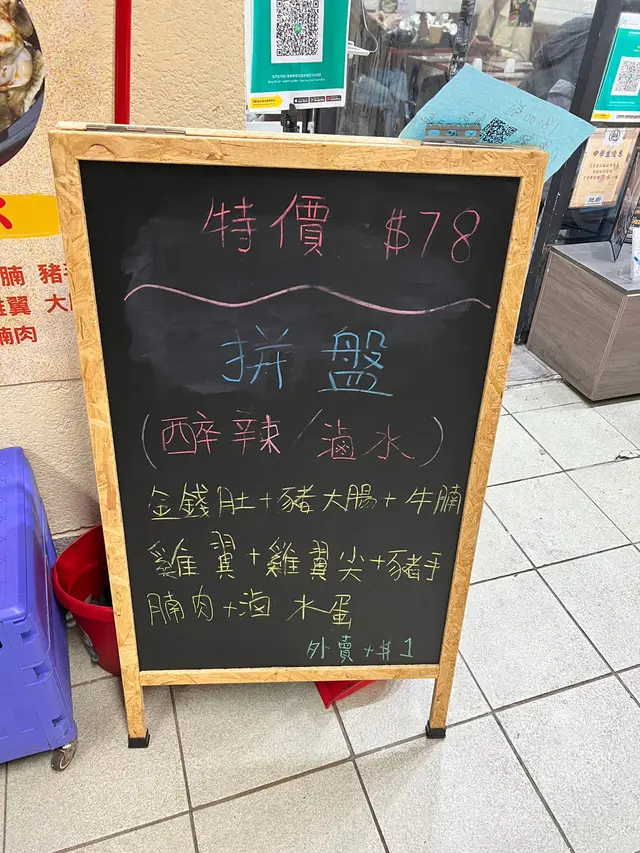 特價 $78
拼盤
(醉辣/滷水)
金錢肚+豬大腸+牛腩
雞翼+雞翼尖+豬手
腩肉+滷水蛋
外賣+$1
中學生優惠
腩 豬
翼 大
腩肉